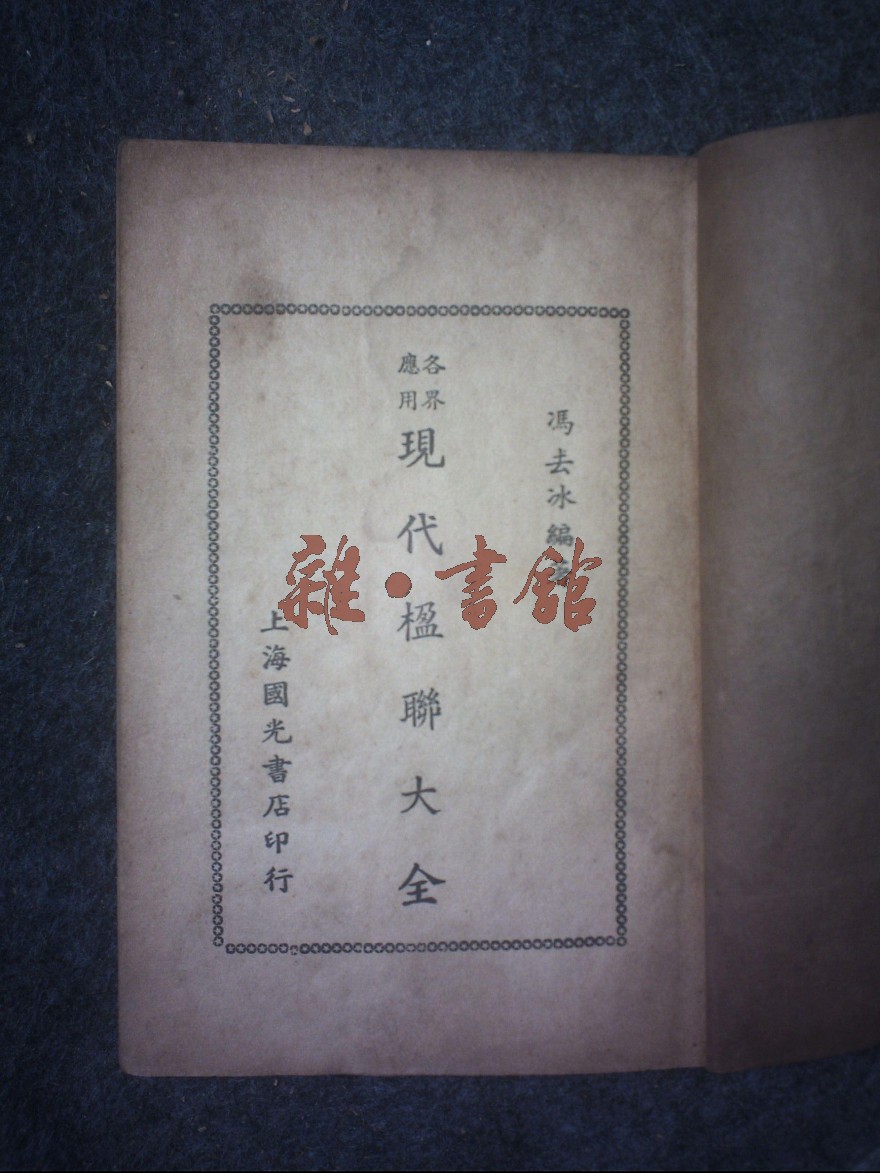 馮去冰編著
各界應用
現代楹聯大全
上海國光書店印行
雜·書館